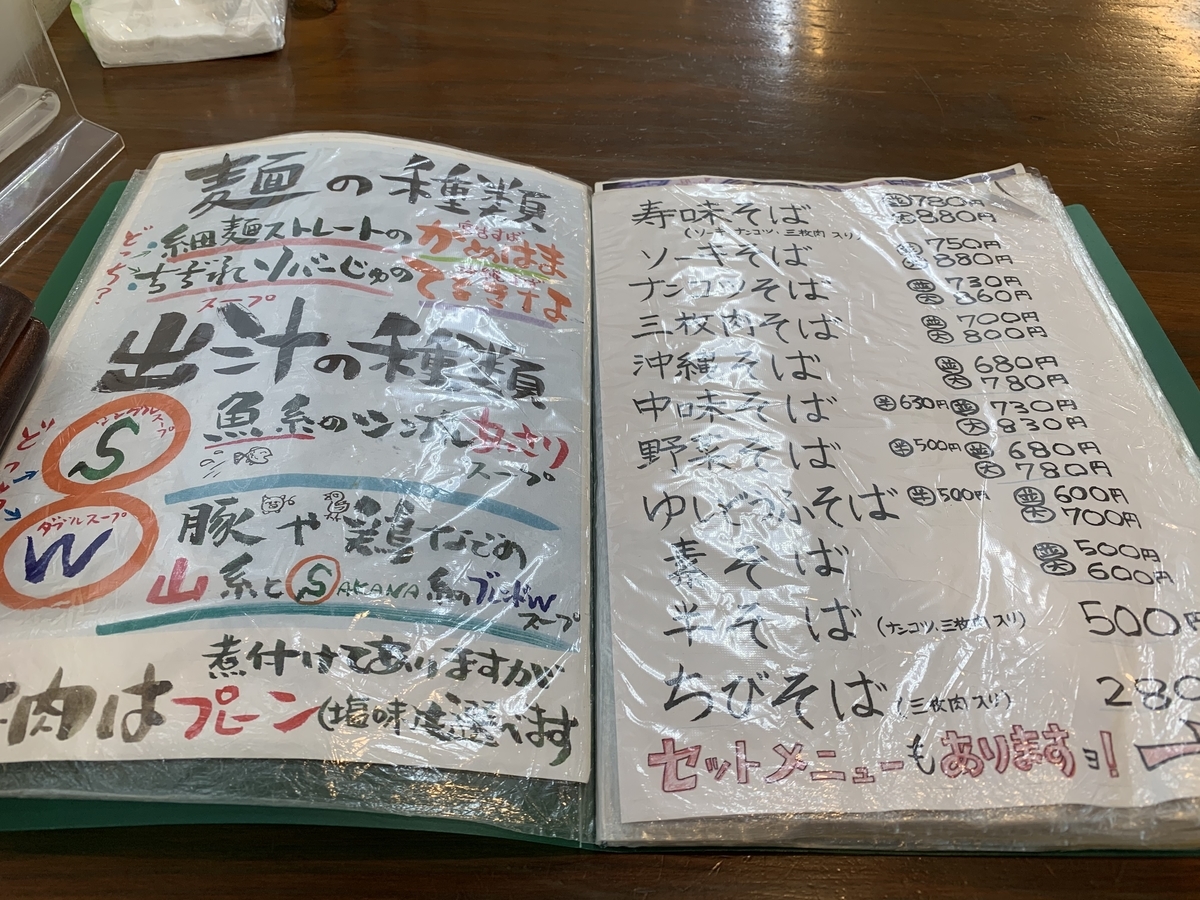 麺の種類
どっち?
細麺ストレートの かめはま
ちぢれソバーじゅの てるきな
スープ
出汁の種類
S シングルスープ
魚系の あっさり
スープ
W ダブルスープ
豚や鶏などの
山系とSAKANA系 ブレンドW
スープ
煮付けてありますが
肉はプレーン(塩味)も選べます
寿味そば 並780円
大880円
(ソーキ ナンコツ・三枚肉 入り)
ソーキそば 並750円
大880円
ナンコツそば 並730円
大860円
三枚肉そば 並700円
大800円
沖縄そば 並680円
大780円
中味そば 半630円 並730円
大830円
野菜そば 半500円 並680円
大780円
ゆしどうふそば 半500円 並600円
大700円
素そば 並500円
大600円
半そば (ナンコツ・三枚肉 入り) 500円
ちびそば (三枚肉 入り) 280
セットメニューもありますョ!